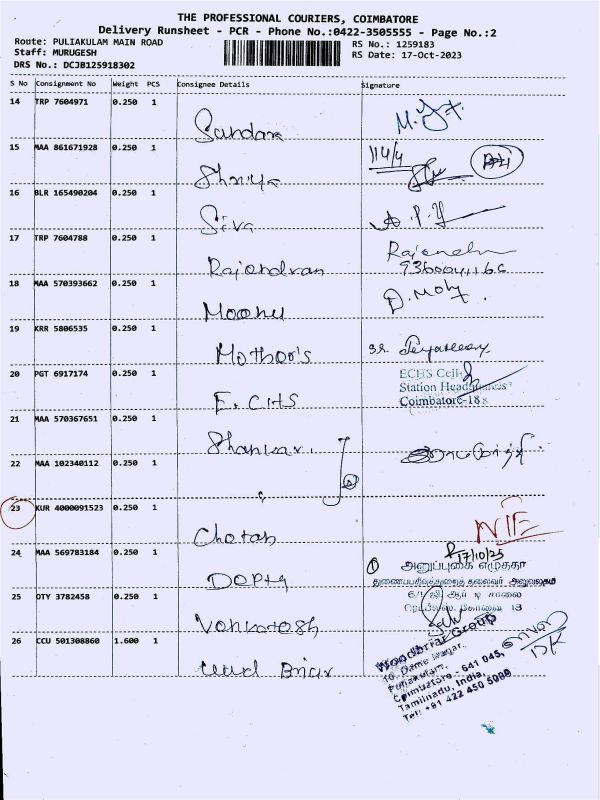 THE PROFESSIONAL COURIERS, COIMBATORE
Delivery Runsheet - PCR - Phone No.:0422-3505555 - Page No.:2
Route: PULIAKULAM MAIN ROAD
Staff: MURUGESH
DRS No.: DCJB125918302
RS No.: 1259183
RS Date: 17-Oct-2023
S No Consignment No Weight PCS Consignee Details Signature
14 TRP 7604971 0.250 1
Sundara
15 MAA 861671928 0.250 1
114/4
Shriya
16 BLR 165490204 0.250 1
Siva
17 TRP 7604788 0.250 1
Rajendran
18 MAA 570393662 0.250 1
19 KRR 5806535 0.250 1
Mother's
20 PGT 6917174 0.250 1
E.CHS
ECHS Cell
Station Headquarters
Coimbatore-18
21 MAA 570367651 0.250 1
Shankar
22 MAA 102340112 0.250 1
23 KUR 4000091523 0.250 1
Chetan
24 MAA 569783184 0.250 1
17/10/25
அனுப்புகை எழுத்தர்
துணைபதிவுத்துறைத் தலைவர் அலுவலகம்
25 OTY 3782458 0.250 1
Venkatesh
26 CCU 501308860 1.600 1
Wud Briar
Woodbriar Group
Puliakulam,
Coimbatore - 641 045,
Tamilnadu, India,
Tel: +91 422 450 5009